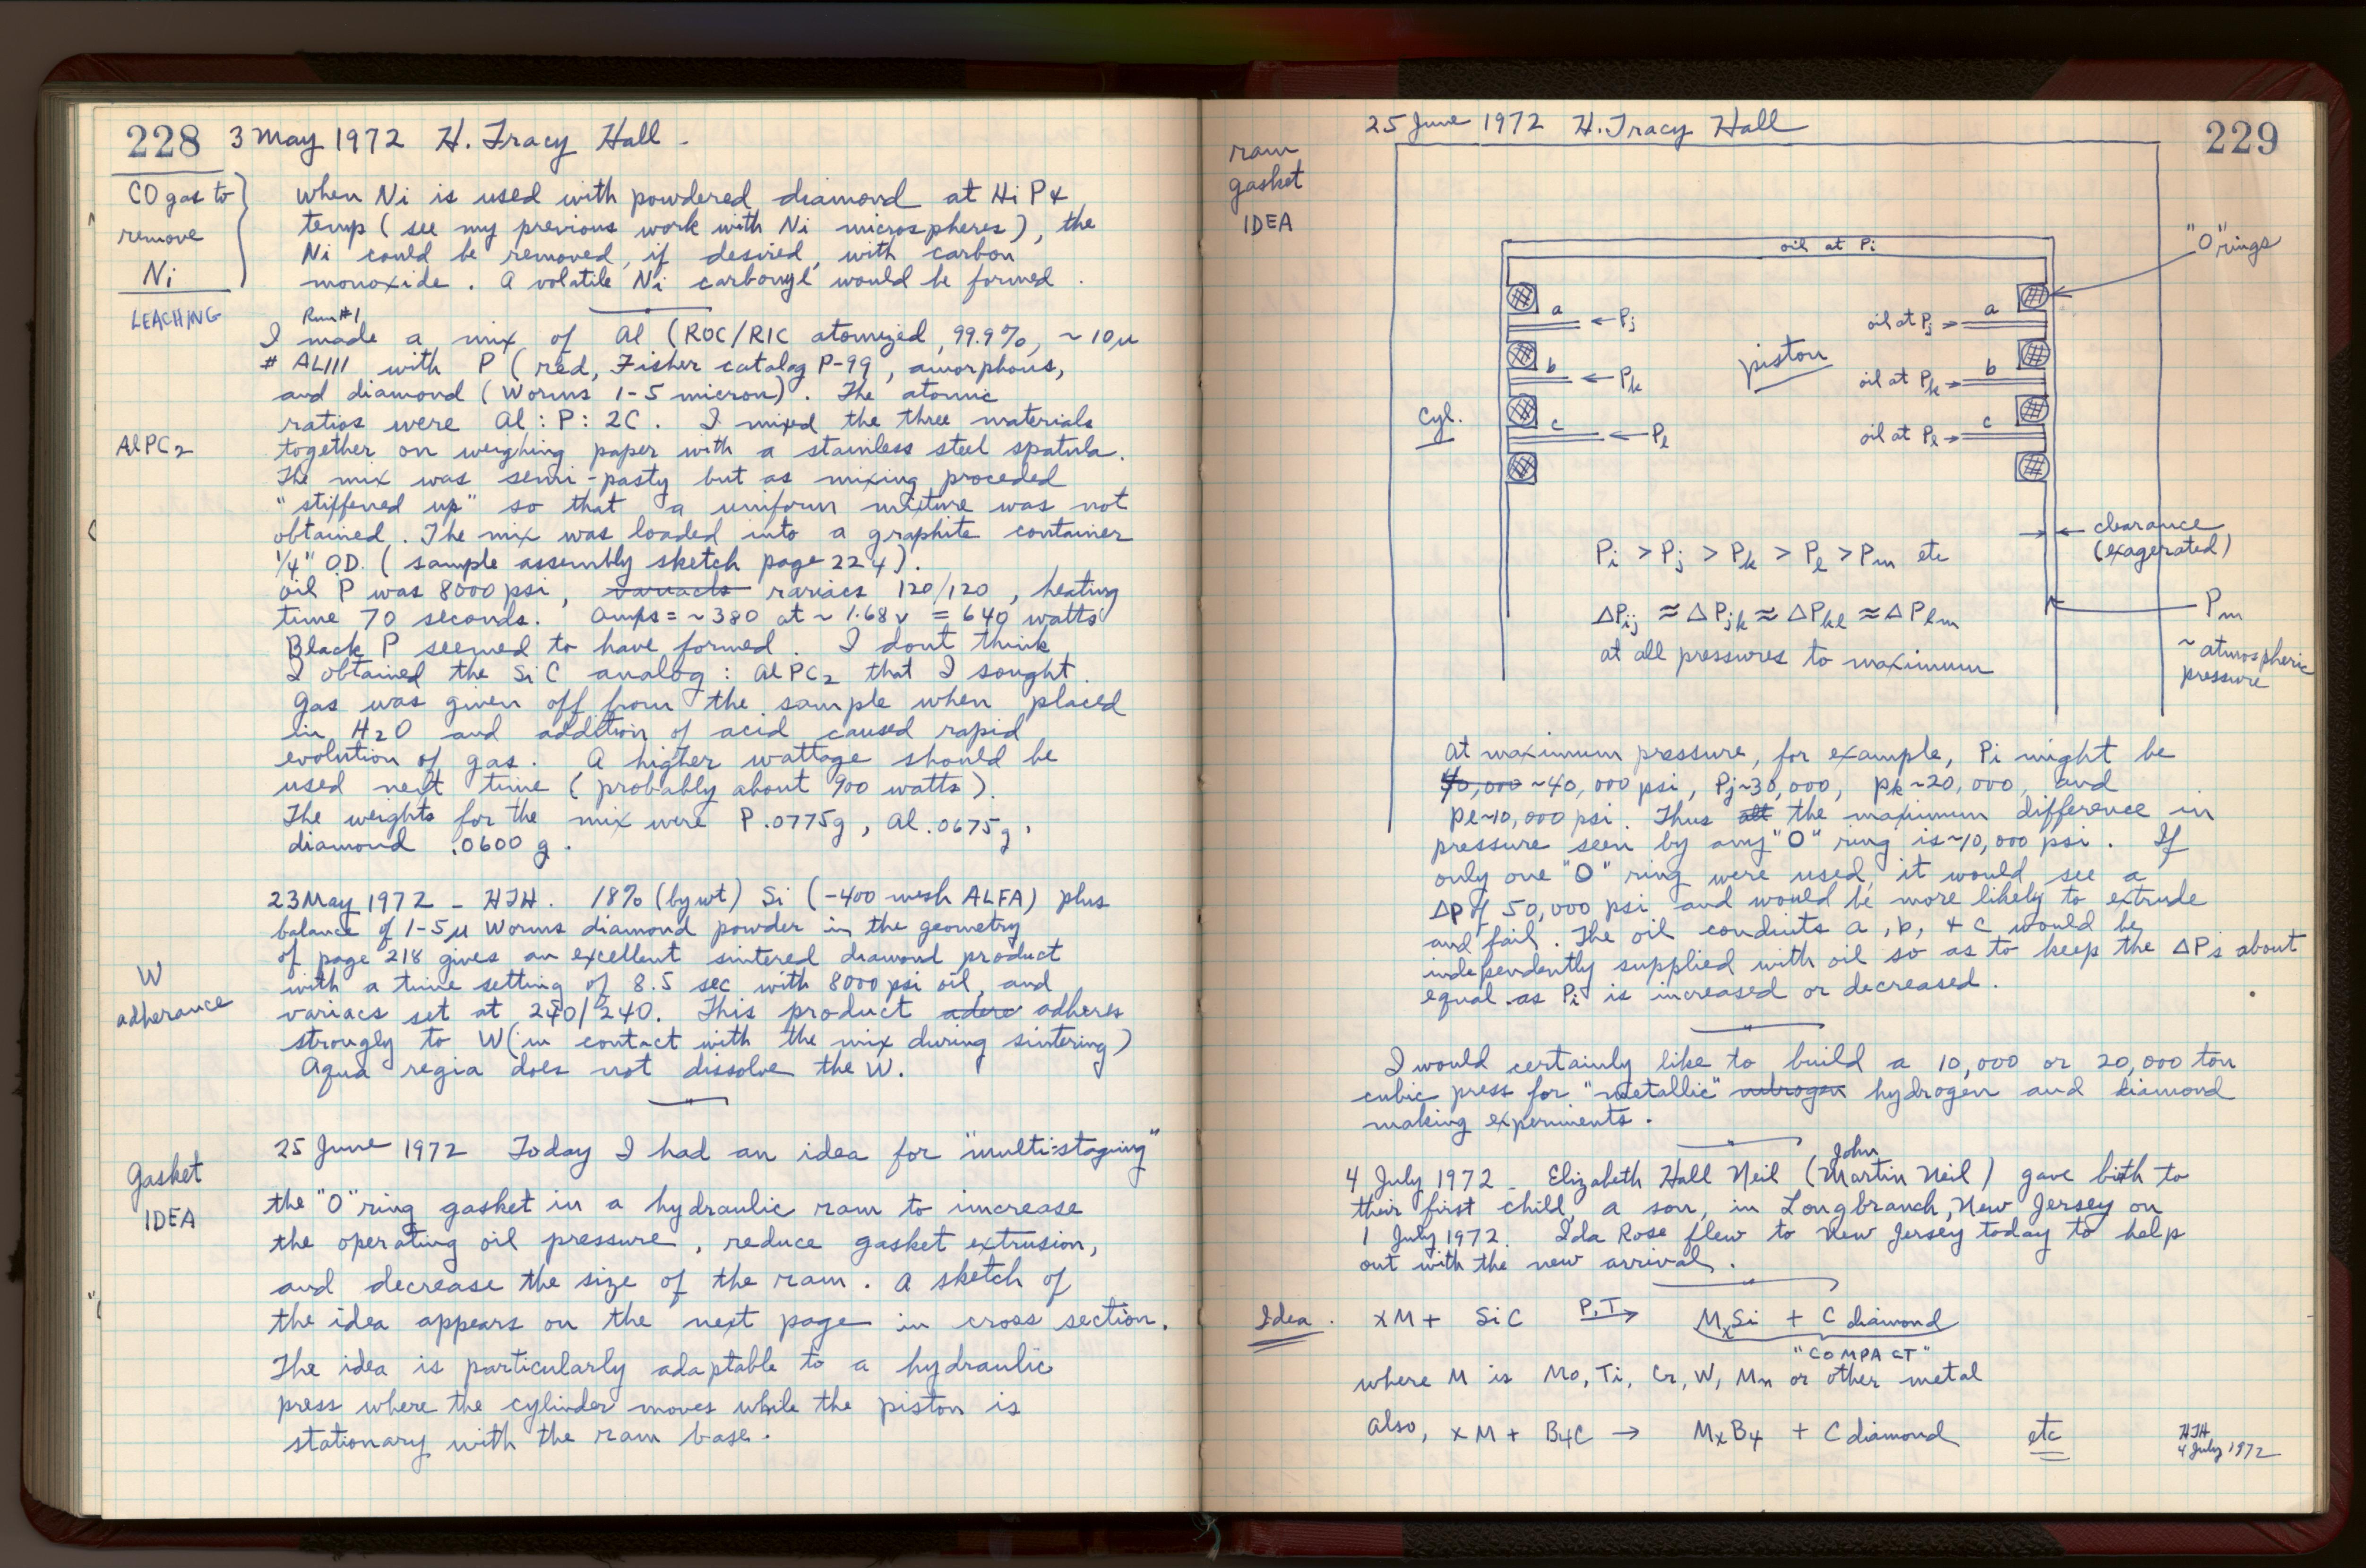 228 3 May 1972 H. Tracy Hall -
CO gas to
remove
Ni
when Ni is used with powdered diamond at Hi P &
temp (see my previous work with Ni microspheres), the
Ni could be removed, if desired, with carbon
monoxide. A volatile Ni carbonyl would be formed.
LEACHING
Run #1
I made a mix of Al (ROC/RIC atomized, 99.9%, ~10μ
# AL111 with P (red, Fisher catalog P-99, amorphous,
and diamond (Worms 1-5 micron). The atomic
ratios were Al : P : 2C. I mixed the three materials
AlPC2
together on weighing paper with a stainless steel spatula.
The mix was semi-pasty but as mixing proceded
"stiffened up" so that a uniform mixture was not
obtained. The mix was loaded into a graphite container
1/4" O.D. (sample assembly sketch page 224).
oil P was 8000 psi, variacs 120/120, heating
time 70 seconds. Amps = ~380 at ~1.68v = 640 watts
Black P seemed to have formed. I dont think
I obtained the SiC analog : AlPC2 that I sought.
Gas was given off from the sample when placed
in H2O and addition of acid caused rapid
evolution of gas. A higher wattage should be
used next time (probably about 900 watts).
The weights for the mix were P .0775g, Al .0675g,
diamond .0600 g.
23 May 1972 - HTH. 18% (by wt) Si (-400 mesh ALFA) plus
balance of 1-5μ Worms diamond powder in the geometry
of page 218 gives an excellent sintered diamond product
W
adherance
with a time setting of 8.5 sec with 8000 psi oil, and
variacs set at 240/240. This product adheres
strongly to W (in contact with the mix during sintering)
Aqua regia does not dissolve the W.
Gasket
IDEA
25 June 1972 Today I had an idea for "multi-staging"
the "O" ring gasket in a hydraulic ram to increase
the operating oil pressure, reduce gasket extrusion,
and decrease the size of the ram. A sketch of
the idea appears on the next page in cross section.
The idea is particularly adaptable to a hydraulic
press where the cylinder moves while the piston is
stationary with the ram base.
25 June 1972 H. Tracy Hall
229
ram
gasket
IDEA
oil at Pi
"O" rings
a ← Pj
oil at Pj → a
piston
b ← Pk
oil at Pk → b
Cyl.
c ← Pl
oil at Pl → c
clearance
(exagerated)
Pi > Pj > Pk > Pl > Pm etc
ΔPij ≈ ΔPjk ≈ ΔPkl ≈ ΔPlm
at all pressures to maximum
Pm
~ atmospheric
pressure
At maximum pressure, for example, Pi might be
40,000 ~40,000 psi, Pj ~30,000, Pk ~20,000, and
Pl ~10,000 psi. Thus all the maximum difference in
pressure seen by any "O" ring is ~10,000 psi. If
only one "O" ring were used, it would see a
ΔP of 50,000 psi and would be more likely to extrude
and fail. The oil conduits a, b, & c would be
independently supplied with oil so as to keep the ΔPs about
equal as Pi is increased or decreased.
I would certainly like to build a 10,000 or 20,000 ton
cubic press for "metallic" nitrogen hydrogen and diamond
making experiments.
John
4 July 1972 - Elizabeth Hall Neil (Martin Neil) gave birth to
their first chill, a son, in Longbranch, New Jersey on
1 July 1972. Ida Rose flew to New Jersey today to help
out with the new arrival.
Idea. xM + SiC P,T→ MxSi + C diamond
"COMPACT"
where M is Mo, Ti, Cr, W, Mn or other metal
also, xM + B4C → MxB4 + C diamond etc
HTH
4 July 1972